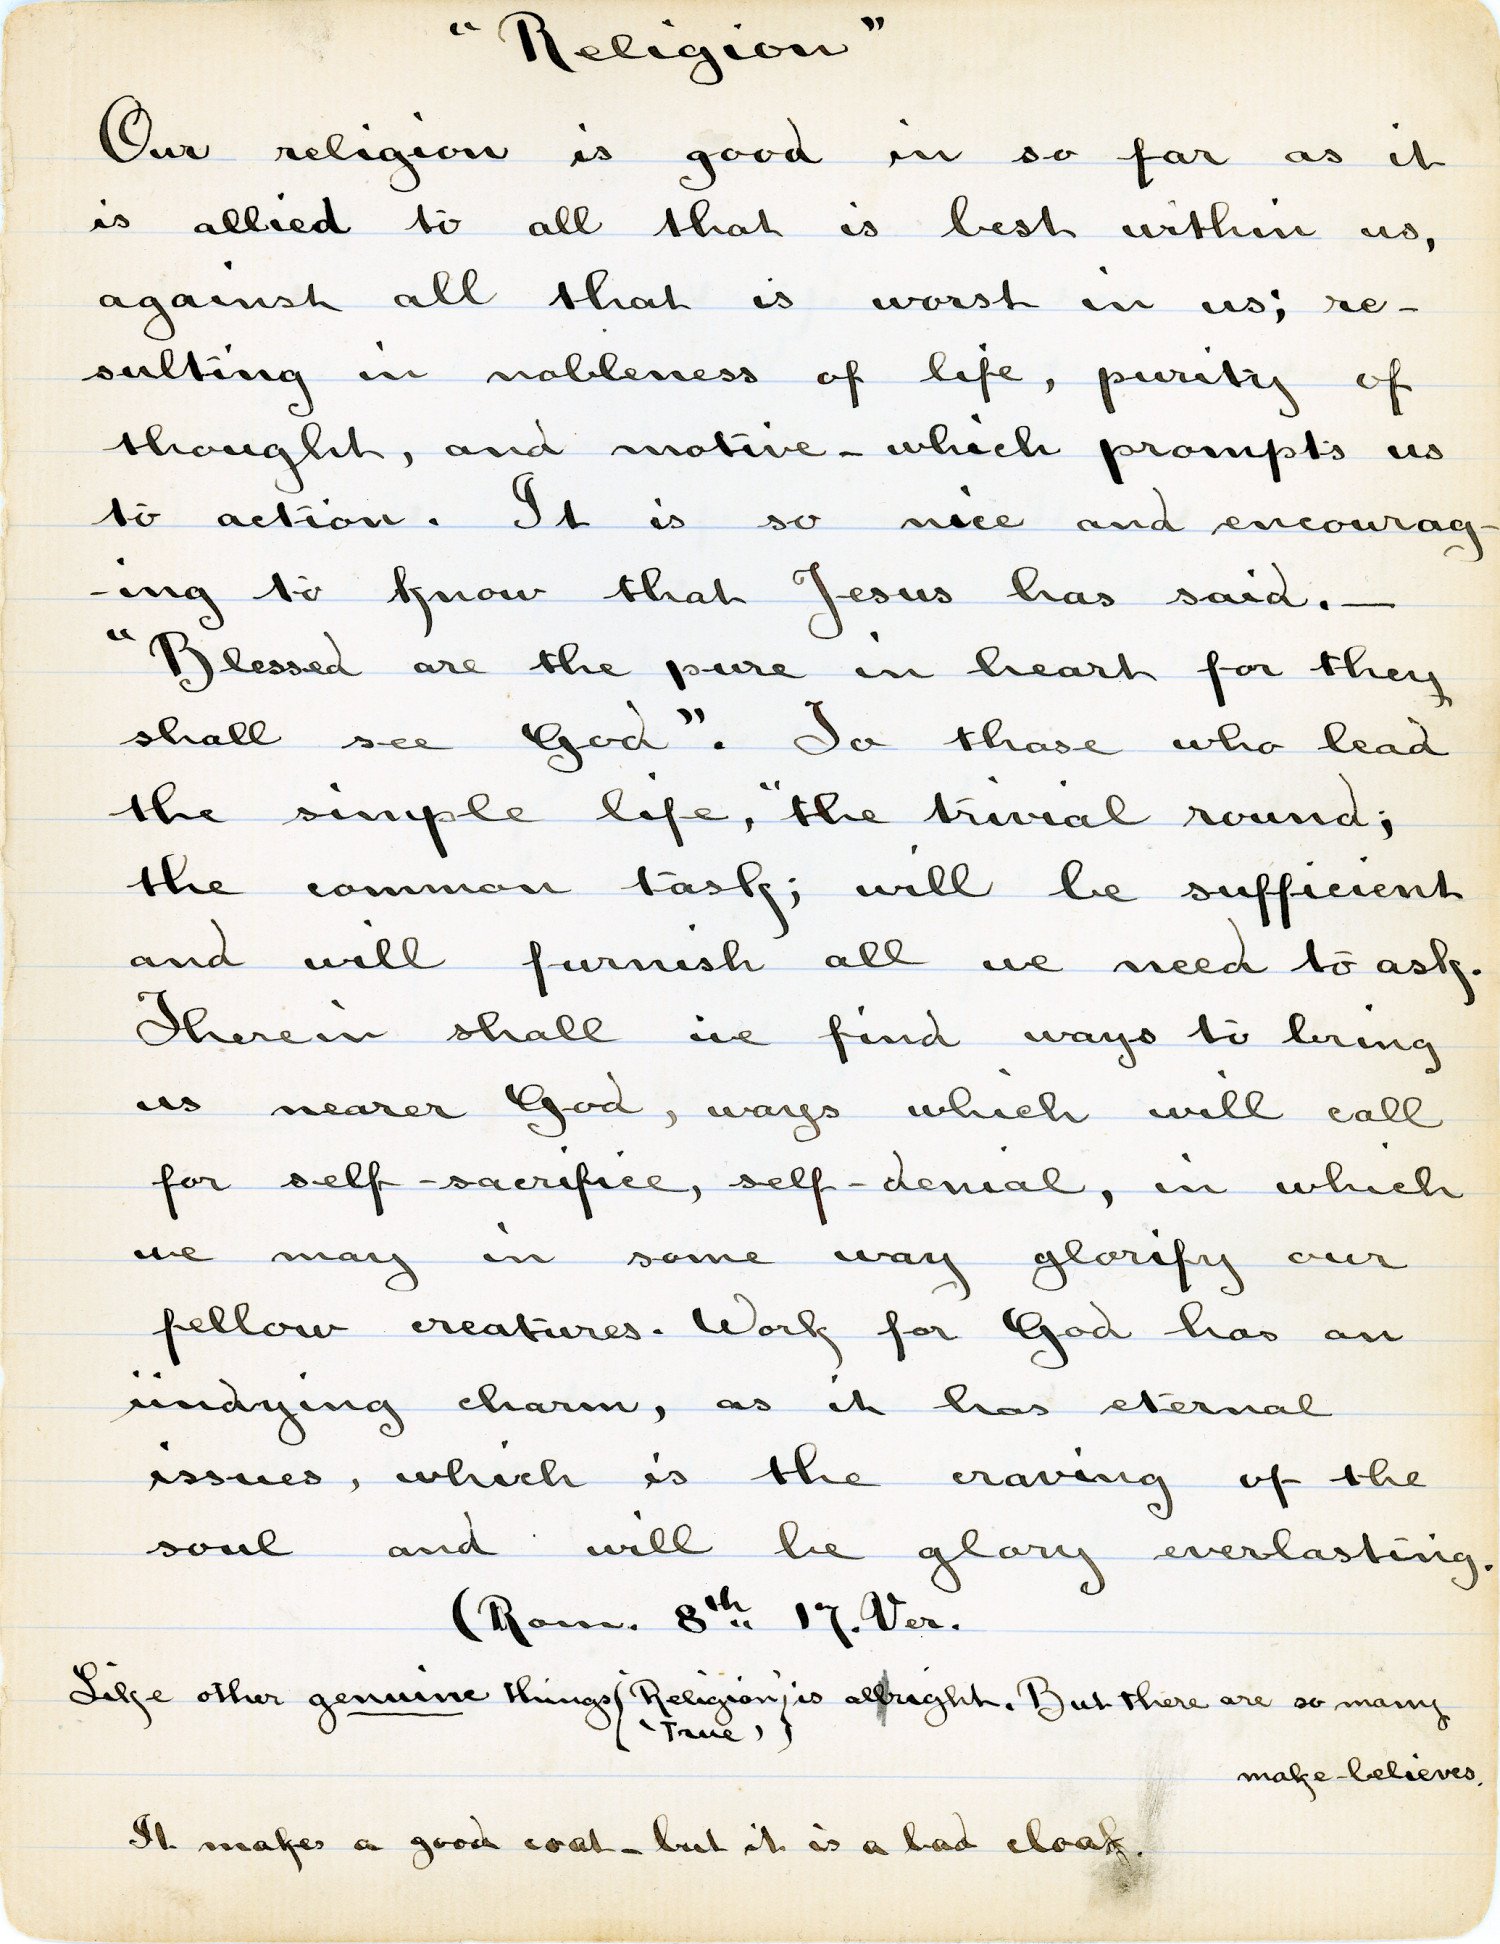 "Religion"
Our religion is good in so far as it
is allied to all that is best within us,
against all that is worst in us; re-
sulting in nobleness of life, purity of
thought, and motive - which prompts us
to action. It is so nice and encourag-
-ing to know that Jesus has said. —
"Blessed are the pure in heart for they
shall see God". To those who lead
the simple life, "the trivial round;
the common task; will be sufficient
and will furnish all we need to ask.
Therein shall we find ways to bring
us nearer God, ways which will call
for self-sacrifice, self-denial, in which
we may in some way glorify our
fellow creatures. Work for God has an
undying charm, as it has eternal
issues, which is the craving of the
soul and will be glory everlasting.
(Rom. 8th 17. Ver.
Like other genuine things (Religion) is allright. But there are so many
('True')
make-believes.
It makes a good coat - but it is a bad cloak.